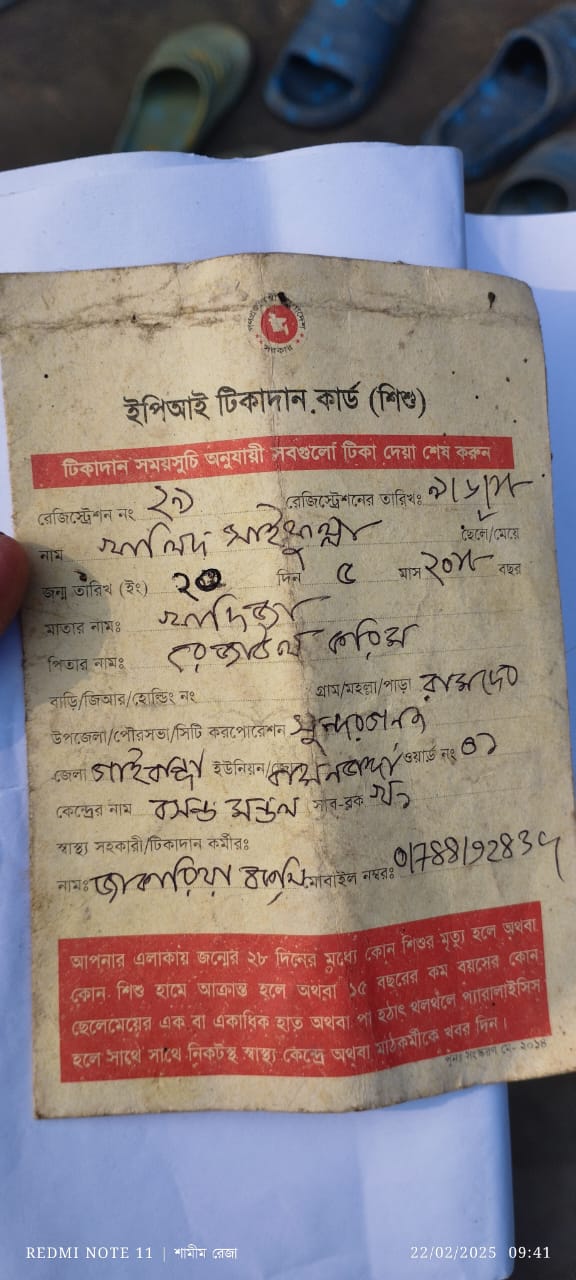 গণপ্রজাতন্ত্রী বাংলাদেশ সরকার
ইপিআই টিকাদান কার্ড (শিশু)
টিকাদান সময়সূচি অনুযায়ী সবগুলো টিকা দেয়া শেষ করুন
রেজিস্ট্রেশন নং ২৯ রেজিস্ট্রেশনের তারিখঃ
নাম খালিদ সাইফুল্লা ছেলে/মেয়ে
জন্ম তারিখ (ইং) ২০ দিন ৫ মাস বছর
মাতার নামঃ খাদিজা
পিতার নামঃ রেজাউল করিম
বাড়ি/জিআর/হোল্ডিং নং গ্রাম/মহল্লা/পাড়া রামদেব
উপজেলা/পৌরসভা/সিটি করপোরেশন সুন্দরগঞ্জ
জেলা গাইবান্ধা ইউনিয়ন/ ওয়ার্ড নং ০১
কেন্দ্রের নাম বসন্ত মন্ডল সাব-ব্লক
স্বাস্থ্য সহকারী/টিকাদান কর্মীরঃ
নামঃ জাকারিয়া মোবাইল নম্বরঃ
আপনার এলাকায় জন্মের ২৮ দিনের মধ্যে কোন শিশুর মৃত্যু হলে অথবা
কোন শিশু হামে আক্রান্ত হলে অথবা ১৫ বছরের কম বয়সের কোন
ছেলেমেয়ের এক বা একাধিক হাত অথবা পা হঠাৎ থলথলে প্যারালাইসিস
হলে সাথে সাথে নিকটস্থ স্বাস্থ্য কেন্দ্রে অথবা মাঠকর্মীকে খবর দিন।
মে- ২০১৪
REDMI NOTE 11 | শামীম রেজা 22/02/2025 09:41